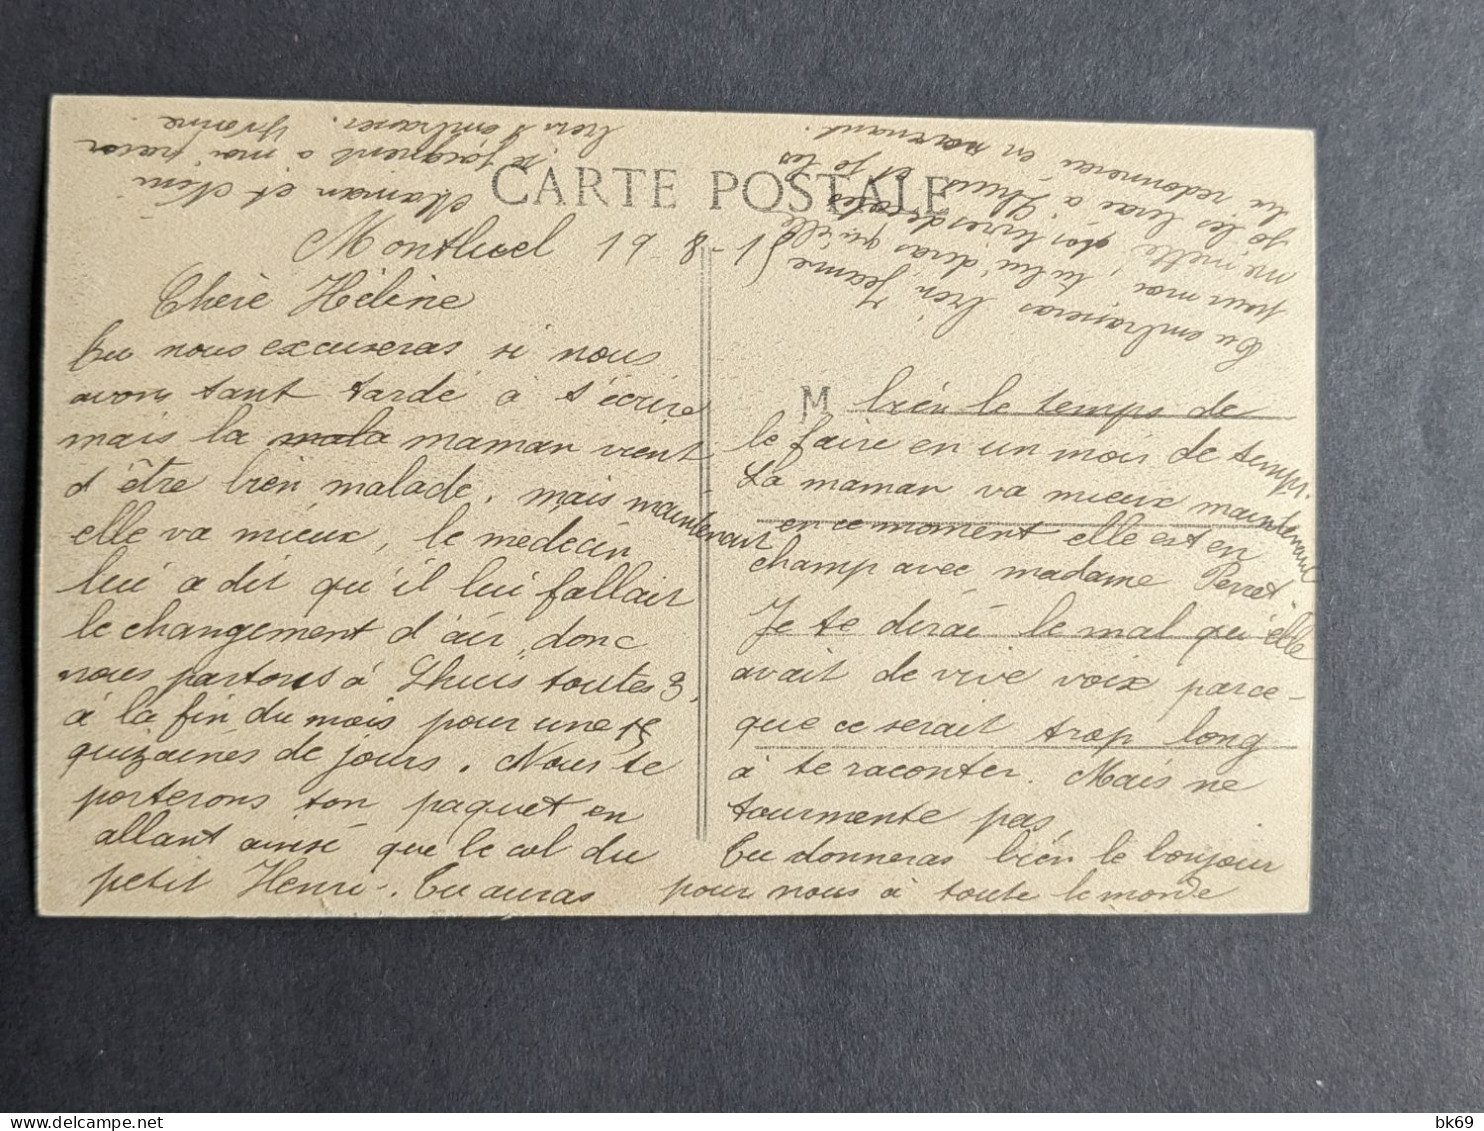 CARTE POSTALE
Montluel 19-8-15
Chère Hélène
tu nous excuseras si nous
avons tant tardé à t'écrire
mais la mala maman vient
d'être bien malade, mais maintenant
elle va mieux, le medecin
lui a dit qu'il lui fallait
le changement d'air, donc
nous partons à Lhuis toutes 3,
à la fin du mois pour une
quizaines de jours. Nous te
porterons ton paquet en
allant ainsi que le col du
petit Henri. Tu auras
M bien le temps de
le faire en un mois de temps.
La maman va mieux maintenant
en ce moment elle est en
champ avec madame Perret
Je te dirai le mal qu'elle
avait de vive voix parce-
que ce serait trop long
à te raconter. Mais ne
tourmente pas
Tu donneras bien le bonjour
pour nous à toute le monde
Tu embrasseras bien Jeanne
pour moi, tu lui diras qu'elle
me mette ses livres de côtés
je les lirai à Lhuis et je les
lui redonnerai en
Maman et Nini
se joignent à moi pour
bien t'embrasser.
Yvonne
bk69